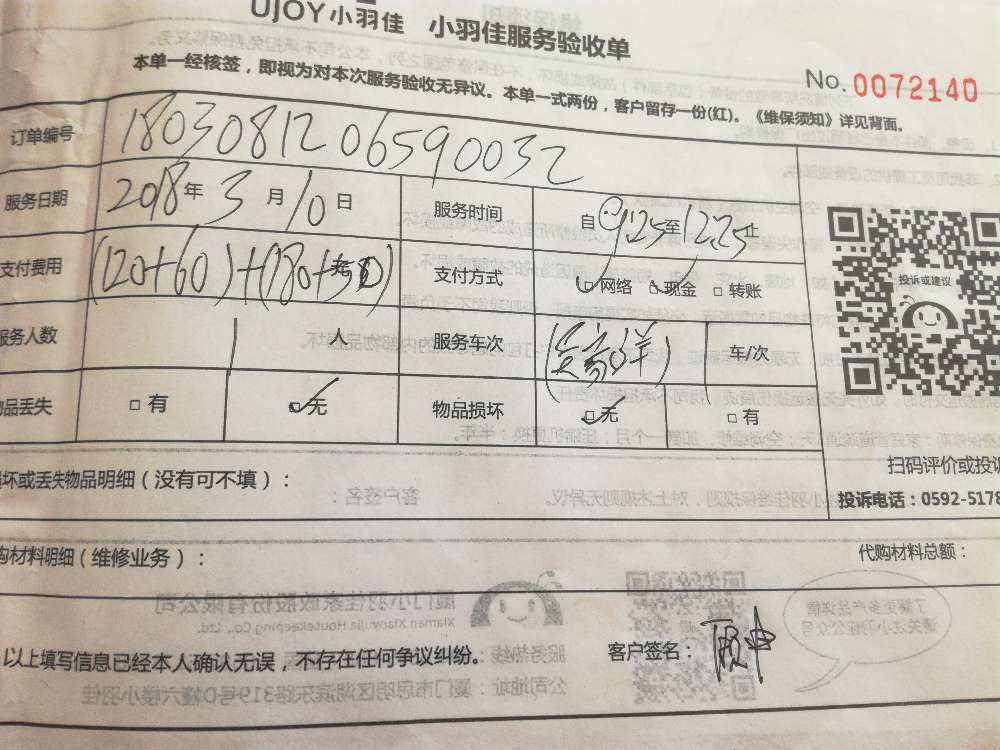 UJOY小羽佳 小羽佳服务验收单
本单一经核签，即视为对本次服务验收无异议。本单一式两份，客户留存一份(红)。《维保须知》详见背面。
No. 0072140
订单编号 180308120659 0032
服务日期 2018年3月10日 服务时间 自9:25至12:25止
支付费用 (120+60)+(180+ 支付方式 ☑网络 ☑现金 □转账
服务人数 1人 服务车次 车/次
物品丢失 □有 ☑无 物品损坏 ☑无 □有
投诉或建议
扫码评价或投诉
坏或丢失物品明细（没有可不填）：
投诉电话：0592-5178
购材料明细（维修业务）： 代购材料总额：
以上填写信息已经本人确认无误，不存在任何争议纠纷。 客户签名：